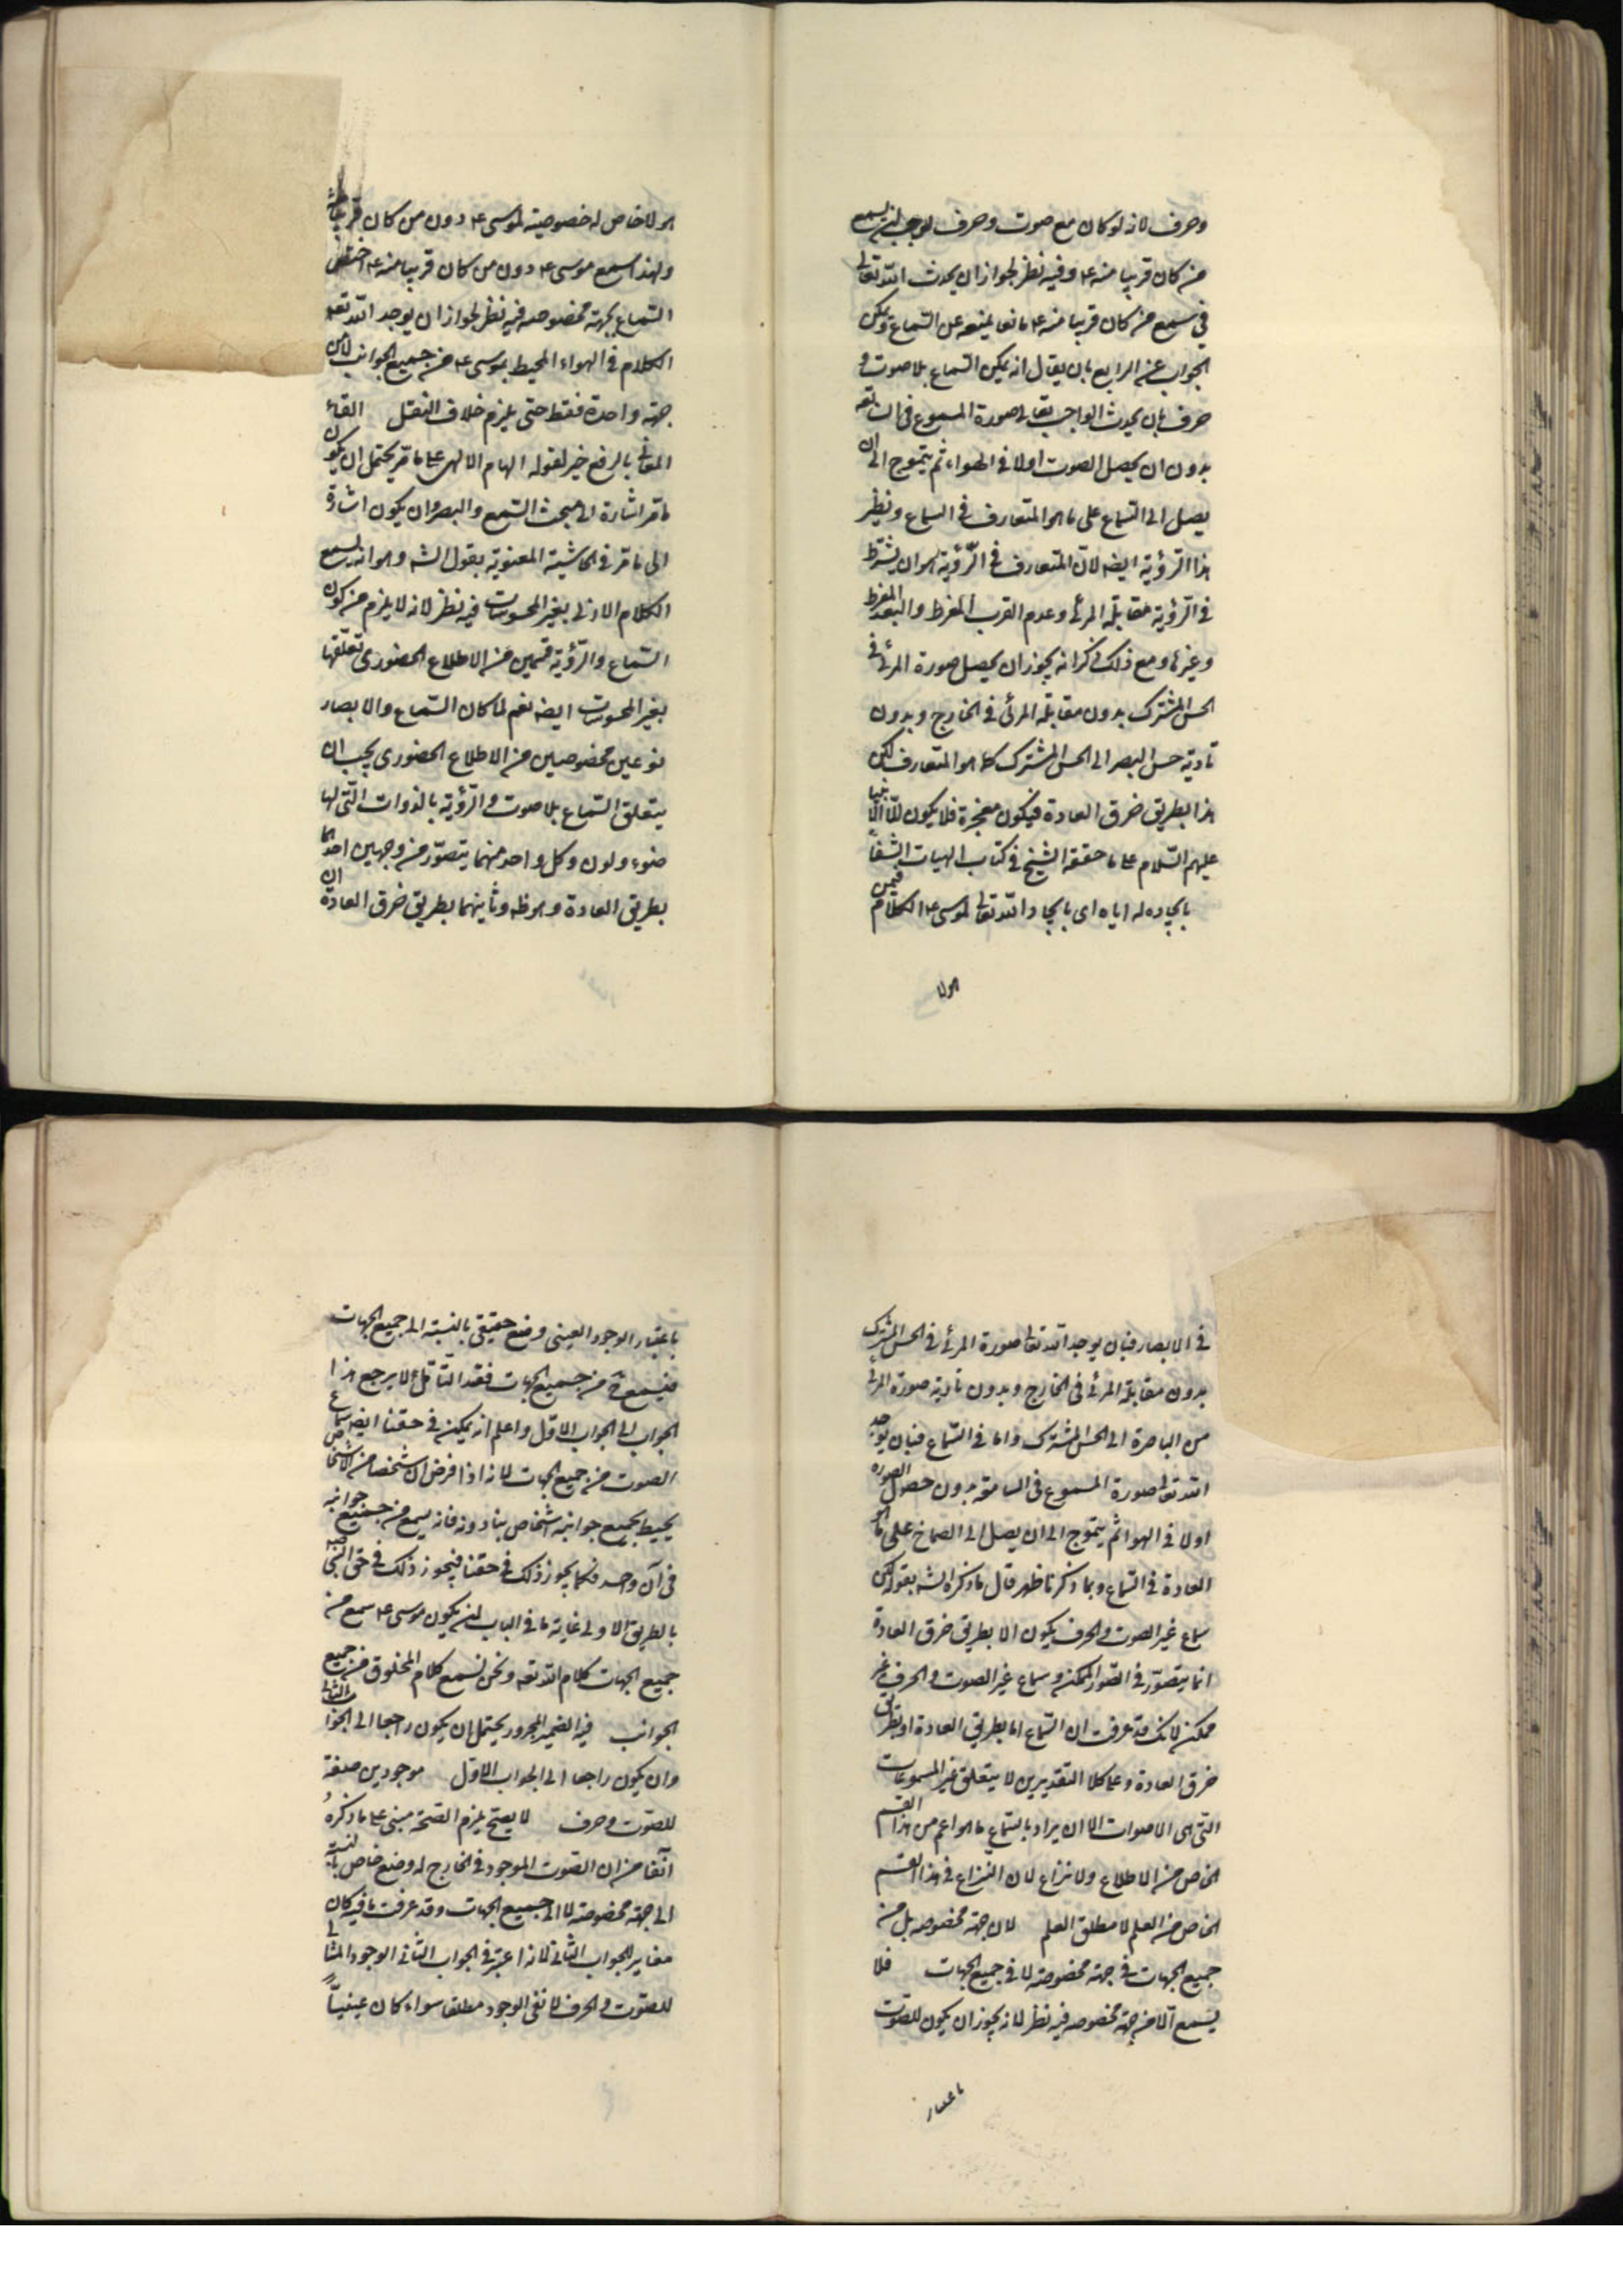 وحرف لانه لو كان مع صوت وحرف لوجب ان يسمع
من كان قريبا منه ع م وفيه نظر لجواز ان يحدث الله تعالى
في سمع من كان قريبا منه ع م مانعا يمنعه عن السماع ويمكن
الجواب عن الرابع بان يقال انه يمكن السماع بلا صوت و
حرف بان يحدث الواجب تعالى صورة المسموع في السامعه
بدون ان يحصل الصوت اولا في الهواء ثم يتموج الى ان
يصل الى السماع على ما هو المتعارف في السماع ونظير
هذا الرؤية ايضه لان المتعارف في الرؤية هو ان يشترط
في الرؤية مقابلة المرئى وعدم القرب المفرط والبعد المفرط
وغيرها ومع ذلك ذكر انه يجوز ان يحصل صورة المرئى في
الحس المشترك بدون مقابلة المرئى في الخارج وبدون
تادية حس البصر الى الحس المشترك كما هو المتعارف لكن
هذا بطريق خرق العادة فيكون معجزة فلا يكون الا للانبيا
عليهم السلام على ما حققه الشيخ في كتاب الهيات الشفا
بايجاده له اياه اى بايجاد الله تعالى لموسى ع م الكلام فيمن
هولا
هو لا خاص له خصوصية لموسى ع م دون من كان قريبا منه
ولهذا سمع موسى ع م دون من كان قريبا منه ع م اختص
السماع بجهة مخصوصه فيه نظر لجواز ان يوجد الله تعه
الكلام في الهواء المحيط بموسى ع م من جميع الجوانب لا من
جهة واحدة فقط حتى يلزم خلاف النقل القاء
المعانى بالرفع خبر لقوله الهام الالهى على ما مر يحتمل ان يكون
ما مر اشارة الى مبحث السمع والبصر وان يكون اشارة
الى ما مر في الحاشية المعنوية بقول الشه وهو انه يسمع
الكلام الازلى بغير المحسوسات فيه نظر لانه لا يلزم من كون
السماع والرؤية قسمين من الاطلاع الحضورى تعلقها
بغير المحسوسات ايضه نعم لما كان السماع والابصار
نوعين مخصوصين من الاطلاع الحضورى يجب ان
يتعلق السماع بلا صوت والرؤية بالذوات التى لها
ضوء ولون وكل واحد منهما يتصور من وجهين احدهما
بطريق العادة وهو ظه وثانيهما بطريق خرق العادة ان
في الابصار فبان يوجد الله تعالى صورة المرئى في الحس المشترك
بدون مقابلة المرئى في الخارج وبدون تادية صورة المرئى
من الباصرة الى الحس المشترك واما في السماع فبان يوجد
الله تعالى صورة المسموع في السامعة بدون حصول الصورة
اولا في الهوا ثم يتموج الى ان يصل الى الصماخ على ما هو
العادة في السماع وبما ذكرنا ظهر قال ما ذكره الشه بقوله لكن
سماع غير الصوت والحرف يكون الا بطريق خرق العادة
انما يتصور في الصور الممكنه وسماع غير الصوت والحرف غير
ممكن لانك قد عرفت ان السماع اما بطريق العادة او بطريق
خرق العادة وعلى كلا التقديرين لا يتعلق غير المسموعات
التى هى الاصوات الا ان يراد بالسماع ما هو اعم من هذا القسم
الخاص من الاطلاع ولا نزاع لان النزاع في هذا القسم
الخاص من العلم لا مطلق العلم لان جهة مخصوصه بل من
جميع الجهات في جهة مخصوصة لا في جميع الجهات فلا
يسمع الا من جهة مخصوصه فيه نظر لانه يجوز ان يكون للصوت
باعتبار
باعتبار الوجود العينى وضع حقيقى بالنسبة الى جميع الجهات
فيسمع ح من جميع الجهات فقد التأمل لا يرجع هذا
الجواب الى الجواب الاول واعلم انه يمكن في حقنا ايضه سماع
الصوت من جميع الجهات لانه اذا فرض ان شخصا من الاشخاص
يحيط بجميع جوانبه اشخاص ينادونه فانه يسمع من جميع جوانبه
في آن واحد فكما يجوز ذلك في حقنا فيجوز ذلك في حق النبى
بالطريق الاولى غاية ما في الباب ان يكون موسى ع م سمع من
جميع الجهات كلام الله تعه ونحن نسمع كلام المخلوق من جميع
الجوانب فيه الضمير المجرور يحتمل ان يكون راجعا الى الجواب الثانى
وان يكون راجعا الى الجواب الاول موجودين صفة
للصوت وحرف لا يصح يلزم الصحة مبنى على ما ذكره
آنفا من ان الصوت الموجود في الخارج له وضع خاص بالنسبة
الى جهة مخصوصة لا الى جميع الجهات وقد عرفت ما فيه كان
مغاير للجواب الثانى لانه اعتبر في الجواب الثانى الوجود المثالى
للصوت والحرف لا نفى الوجود مطلقا سواء كان عينيا